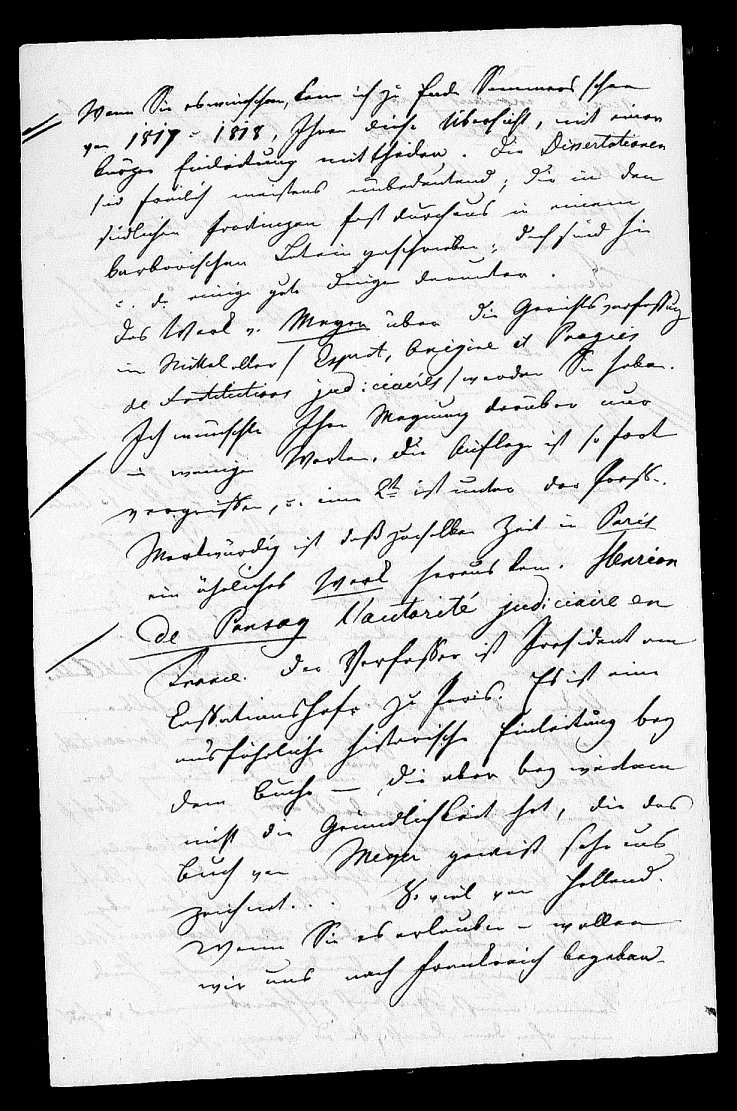 Wenn Sie es wünschen, kan ich zu Ende Sommers schon
von 1817 - 1818, Ihnen diese Übersicht, mit einer
kurzen Einleitung mittheilen. Die Dissertationen
sind freilich meistens unbedeutend; die in den
südlichen Provinzen fast durchaus in einem
barbarischen Latein geschrieben; doch sind hie
u. da einige gute Dinge darunter.
Das Werk v. Meyer über die Gerichtsverfassung
im Mittelalter / Esprit, Origine et Progrès
de Institutions judiciaires / werden Sie haben.
Ich wünschte Ihre Meynung darüber nur
in wenigen Worten. Die Auflage ist so fort
vergriffen, u. eine 2te ist unter der Presse.
Merkwürdig ist daß zur selben Zeit in Paris
ein ähnliches Werk heraus kam. Henrion
de Pansay l'autorité judiciaire en
France. Der Verfasser ist President am
Cassationshofe zu Paris. Es ist eine
ausführliche historische Einleitung bey
dem Buche — die aber bey weitem
nicht die Gründlichkeit hat, die das
Buch von Meyer gewiß sehr aus
zeichnet... So viel von Holland.
Wenn Sie es erlauben - wollen
wir uns nach Frankreich begeben.